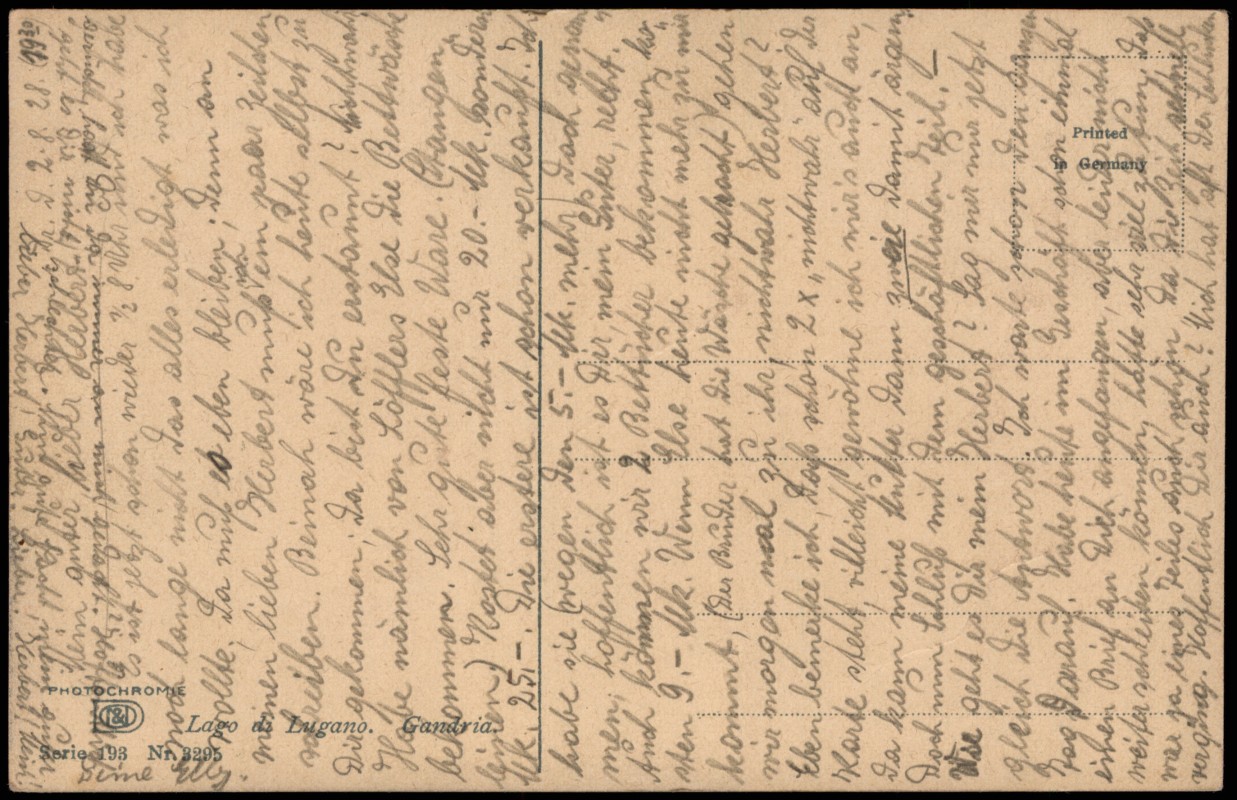 Printed
in Germany
PHOTOCHROMIE
Lago di Lugano. Gandria.
Serie 193 Nr. 3295
Mein guter, lieber Herbert!
Es ist jetzt schon wieder ½ 8 Uhr und ich habe
noch lange nicht das alles erledigt was ich
wollte. Da muß es eben bleiben. Denn an
meinen lieben Herbert muß ein paar Zeilchen
schreiben. Beinah wäre ich heute selbst zu
Dir gekommen, da bist Du erstaunt? nichtwahr
Habe nämlich von Löfflers Else die Bettwäsche
bekommen. Sehr gute feste Ware. (Stangen
leinen) Kostet aber nicht nur 20.- Mk. sondern
Mk. 25.-. Die erstere ist schon verkauft. Ich
habe sie (wegen den 5.- Mk. mehr) doch genom
men, hoffentlich ist es Dir, mein Guter, recht.
Auch können wir 2 Betttücher bekommen ko
sten 9.- Mk. Wenn Else heute nicht mehr zu mir
kommt, (der Bruder hat die Wäsche gebracht) gehen
wir morgen mal zu ihr, nichtwahr Herbert?
Eben bemerke ich, daß schon 2 x "nichtwahr" auf der
Karte steht, vielleicht gewöhne ich mir's auch an,
da kann meine Mutter dann zwei damit ärgern.
Doch nun Schluß mit dem geschäftlichen Teil. –
Wie geht es Dir mein Herbert? Sag mir nur jetzt
gleich die Antwort. Ich warte schon den ganzen
Tag darauf. Habe heute im Geschäft schon einmal
einen Brief an Dich angefangen, aber leider nicht
weiterschreiben können, hatte sehr viel zu tun, das
war ja eines Teiles auch schön. Da die Zeit schnell
verging. Hoffentlich Dir auch? Mich hat oft der
Deine Elly.